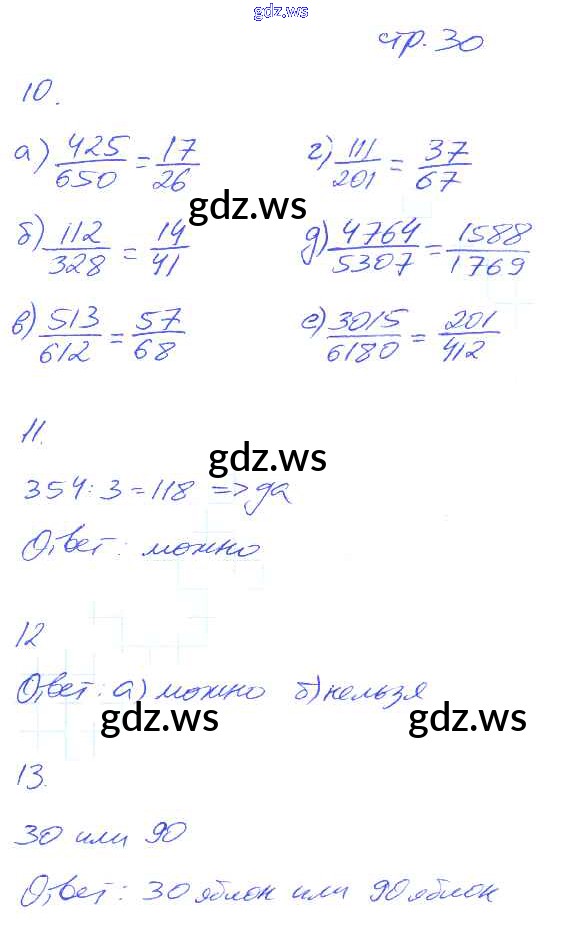 gdz.ws
стр. 30
10.
а) 425/650 = 17/26 г) 111/201 = 37/67
gdz.ws
б) 112/328 = 14/41 д) 4764/5307 = 1588/1769
в) 513/612 = 57/68 е) 3015/6180 = 201/412
11.
gdz.ws
354 : 3 = 118 => да
Ответ: можно
12
Ответ: а) можно б) нельзя
gdz.ws gdz.ws
13.
30 или 90
Ответ: 30 яблок или 90 яблок